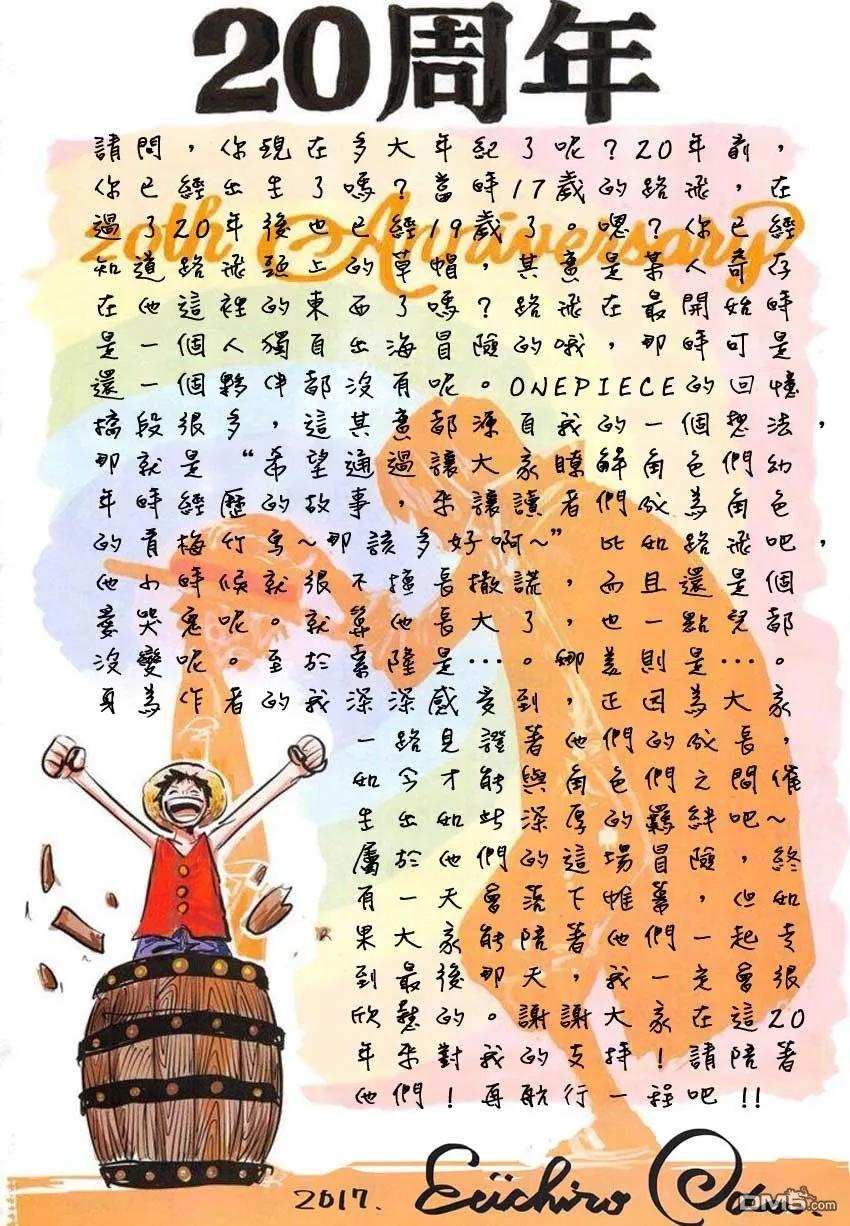 20周年
20th Anniversary
請問，你現在多大年紀了呢？20年前，
你已經出生了嗎？當時17歲的路飛，在
過了20年後也已經19歲了。嗯？你已經
知道路飛頭上的草帽，其實是某人寄存
在他這裡的東西了嗎？路飛在最開始時
是一個人獨自出海冒險的哦，那時可是
還一個夥伴都沒有呢。ONEPIECE的回憶
橋段很多，這其實都源自我的一個想法，
那就是“希望通過讓大家瞭解角色們幼
年時經歷的故事，來讓讀者們成為角色
的青梅竹馬~那該多好啊~”比如路飛吧，
他小時候就很不擅長撒謊，而且還是個
愛哭鬼呢。就算他長大了，也一點兒都
沒變呢。至於索隆是…。娜美則是…。
身為作者的我深深感受到，正因為大家
一路見證著他們的成長，
如今才能與角色們之間催
生出如此深厚的羈絆吧~
屬於他們的這場冒險，終
有一天會落下帷幕，但如
果大家能陪著他們一起走
到最後那天，我一定會很
欣慰的。謝謝大家在這20
年來對我的支持！請陪著
他們！再航行一程吧！！
2017. Eiichiro Oda.
DM5.com